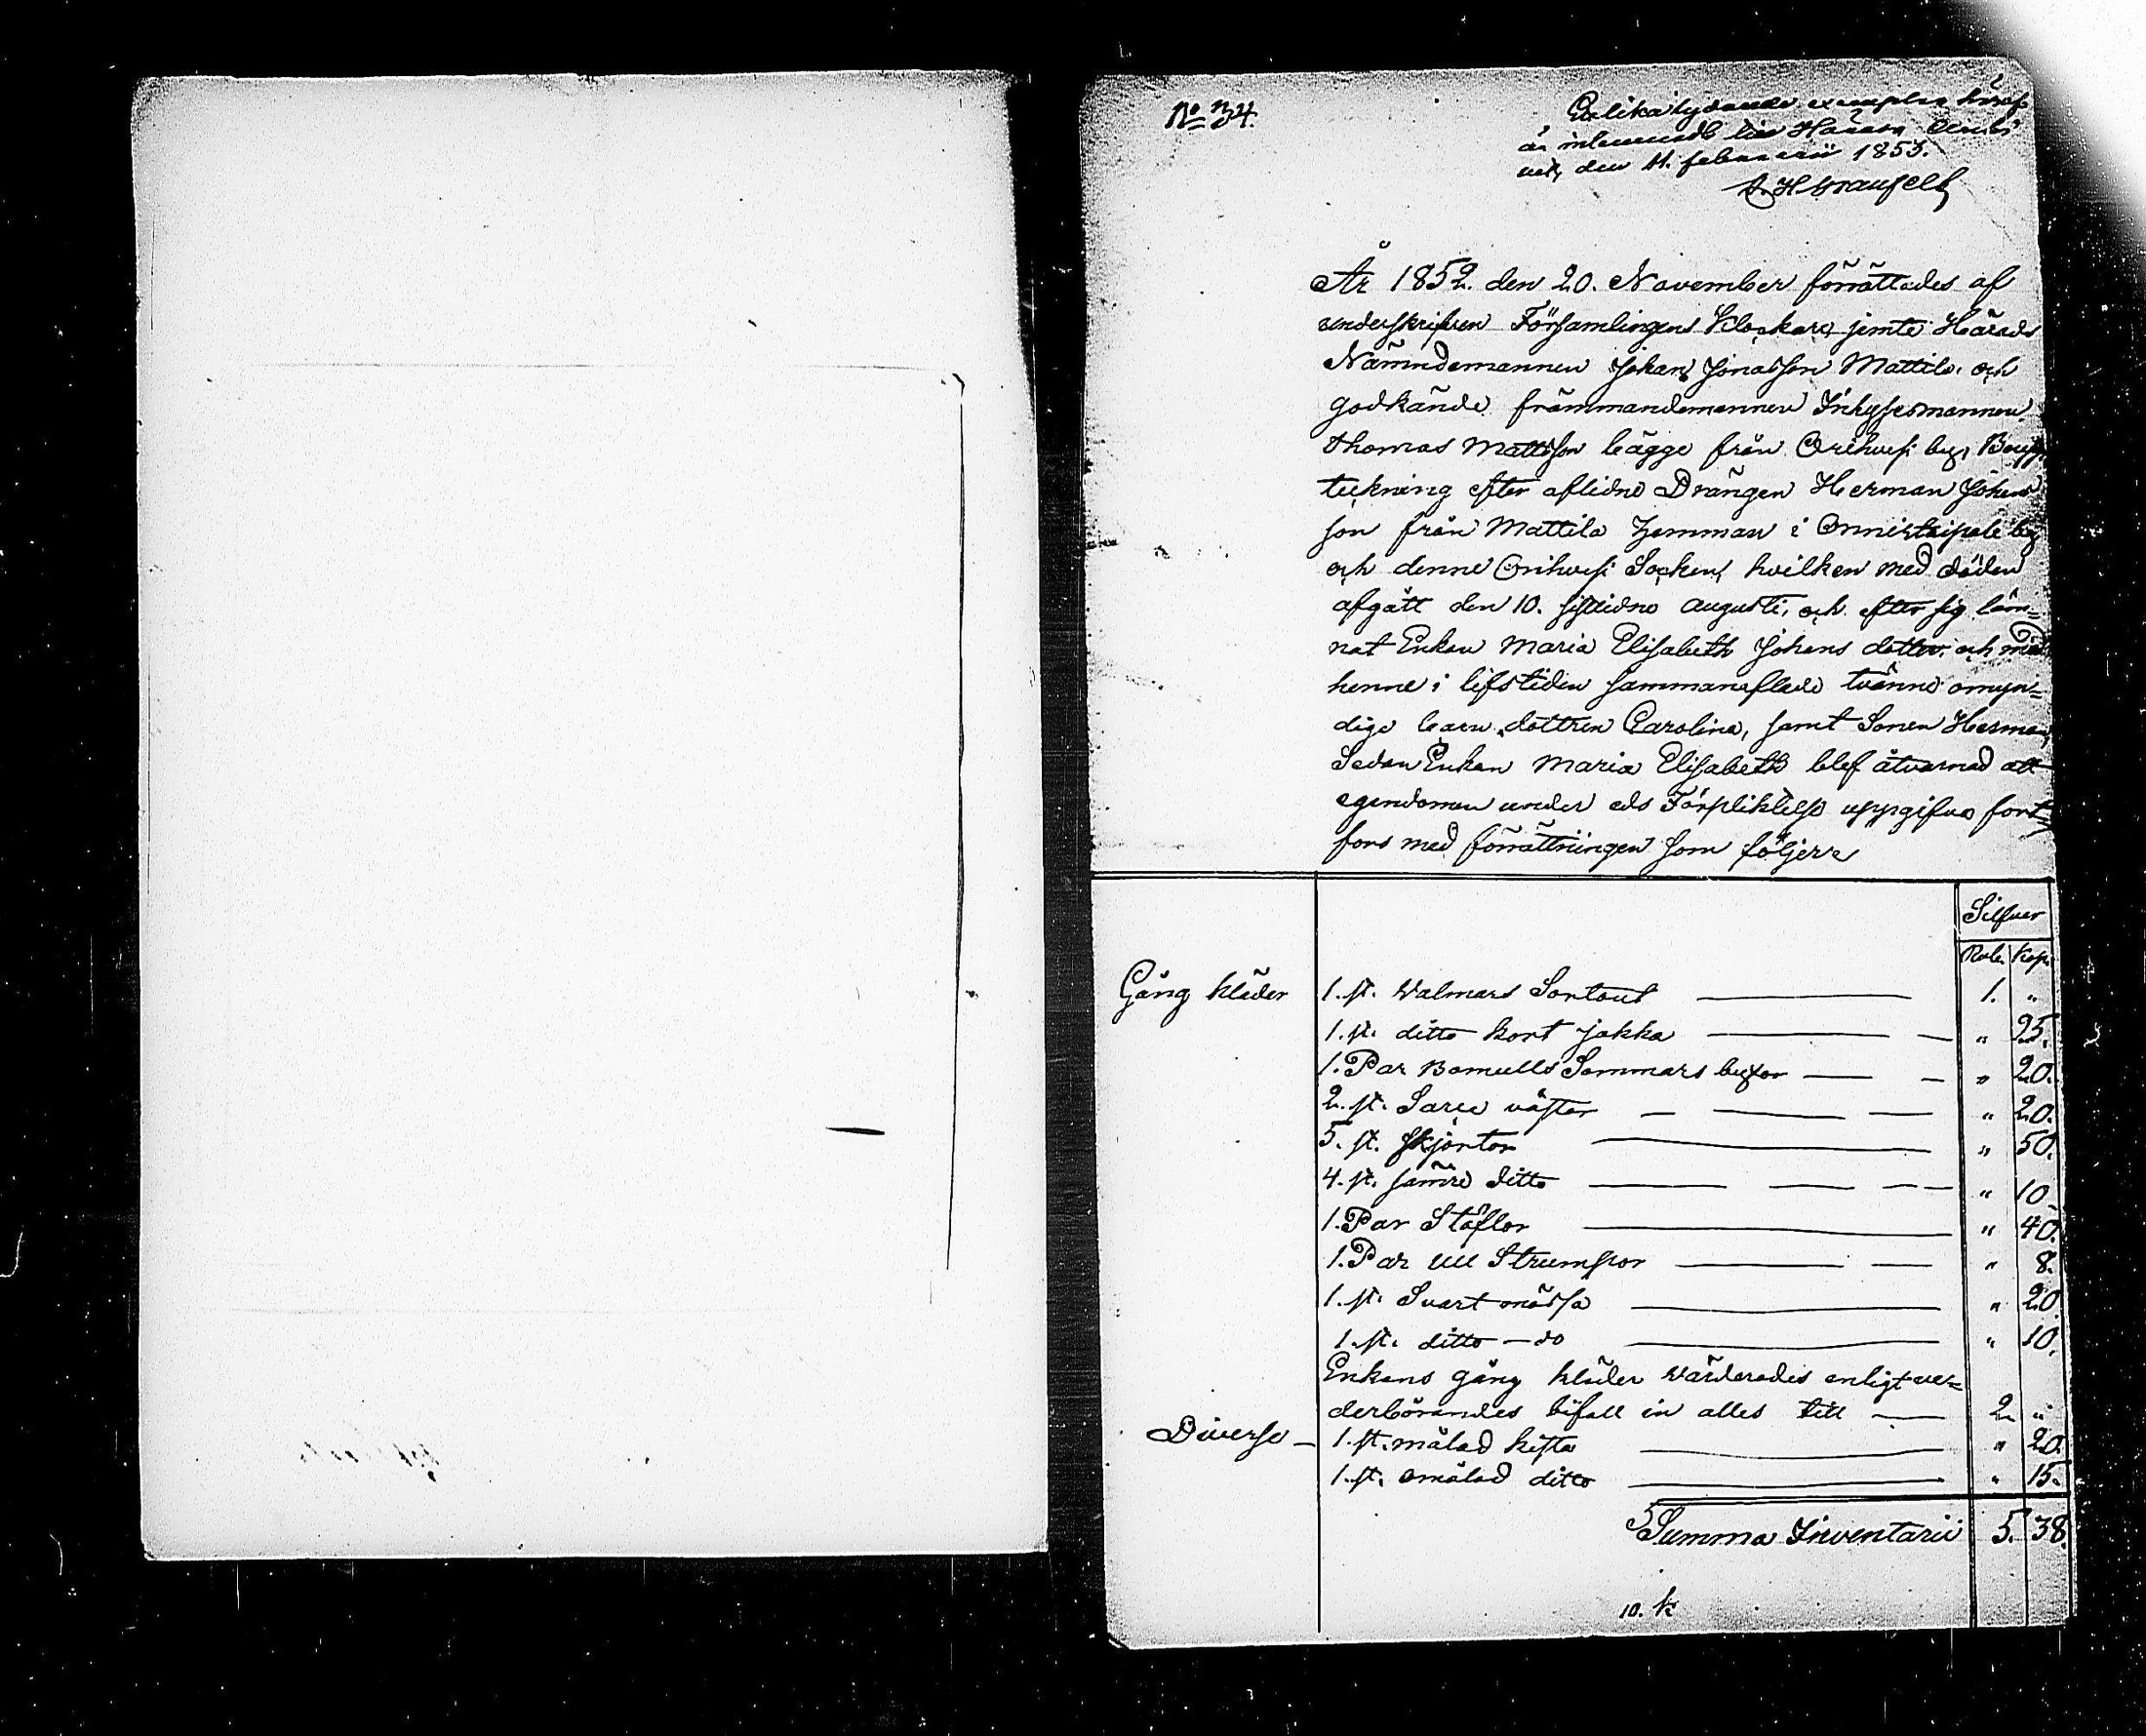 No 34.
Ett lika lydande exemplar häraf
är inlemnadt till Härads
den 11. februarii 1853.
År 1852. den 20. November förrättades af
underskrifven Församlingens Klockare, jemte Härads
Nämndemannen Johan Jonasson Mattila och
godkände främmandemannen Inhysesmannen
Thomas Mattsson bägge från Orihvesi by, Boupp
teckning efter aflidne Drängen Herman Johans
son från Mattila hemman i Onnistaipale by
och denne Orihvesi Socken, hvilken med döden
afgått den 10. sistlidne augusti, och efter sig läm=
nat Enkan Maria Elisabeth Johans dotter och med
henne i lifstiden sammanaflade tvänne omyn=
dige barn dottren Carolina, samt Sonen Herman,
Sedan Enkan Maria Elisabeth blef åtvarnad att
egendomen under eds Förpliktelse uppgifva fort=
fors med förrättningen som följer
Silfver
Rub. Kop.
Gång kläder 1. st. Walmars Sortout 1. "
1. st. ditto kort jakka " 25.
1. Par Bomulls Sommars buxor " 20.
2. st. Sarce västar " 20.
5. st. skjortor " 50.
4. st. sämre ditto " 10
1. Par Stöflor " 40.
1. Par ull Strumpor " 8.
1. st. Svart mössa " 20
1. st. ditto - do " 10.
Enkans gång kläder värderades enligt ve=
derbörandes bifall in alles till 2 "
Diverse 1. st. målad kista " 20.
1. st. omålad ditto " 15.
Summa Inventarii 5. 38.
10. k